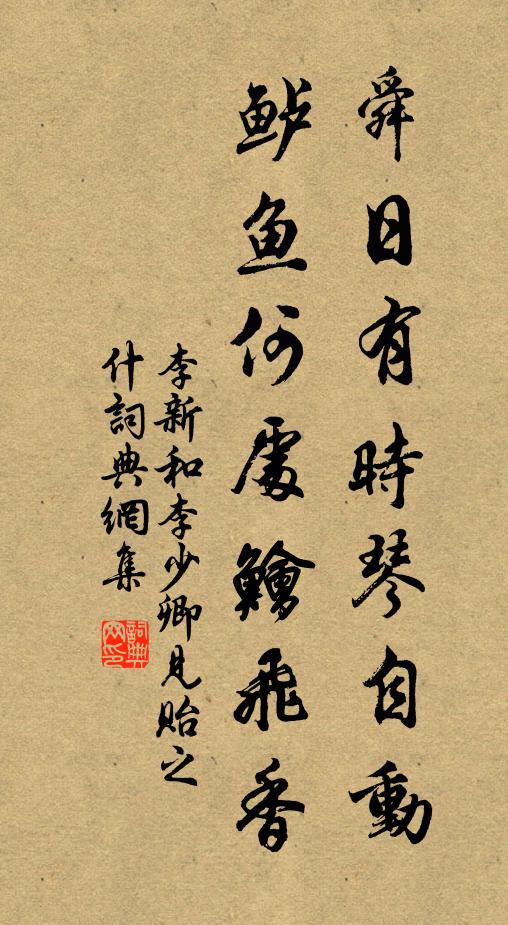 舜日有時琴自動
鲈鱼何處鱠飛香
李新和李少卿見貽之
什詞典網集
詞典网印